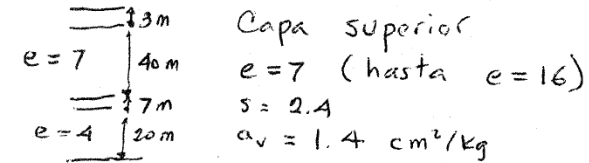 3 m
e = 7
40 m
7 m
e = 4
20 m
Capa superior
e = 7 (hasta e = 16)
s = 2.4
av = 1.4 cm²/kg